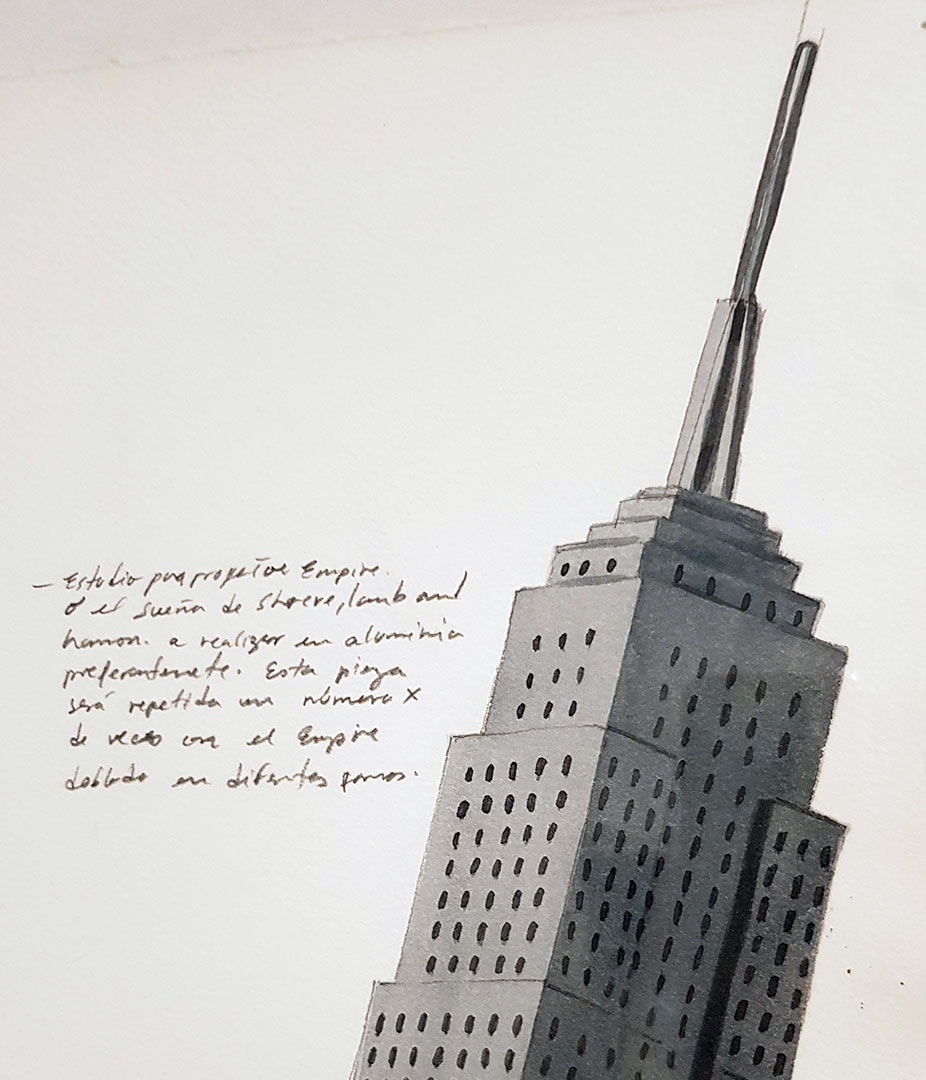 - Estudio para proyecto Empire.
o el sueño de Shreve, lamb and
harmon. a realizar en aluminio
preferentemente. Esta pieza
será repetida un número x
de veces con el Empire
doblado en diferentes formas.